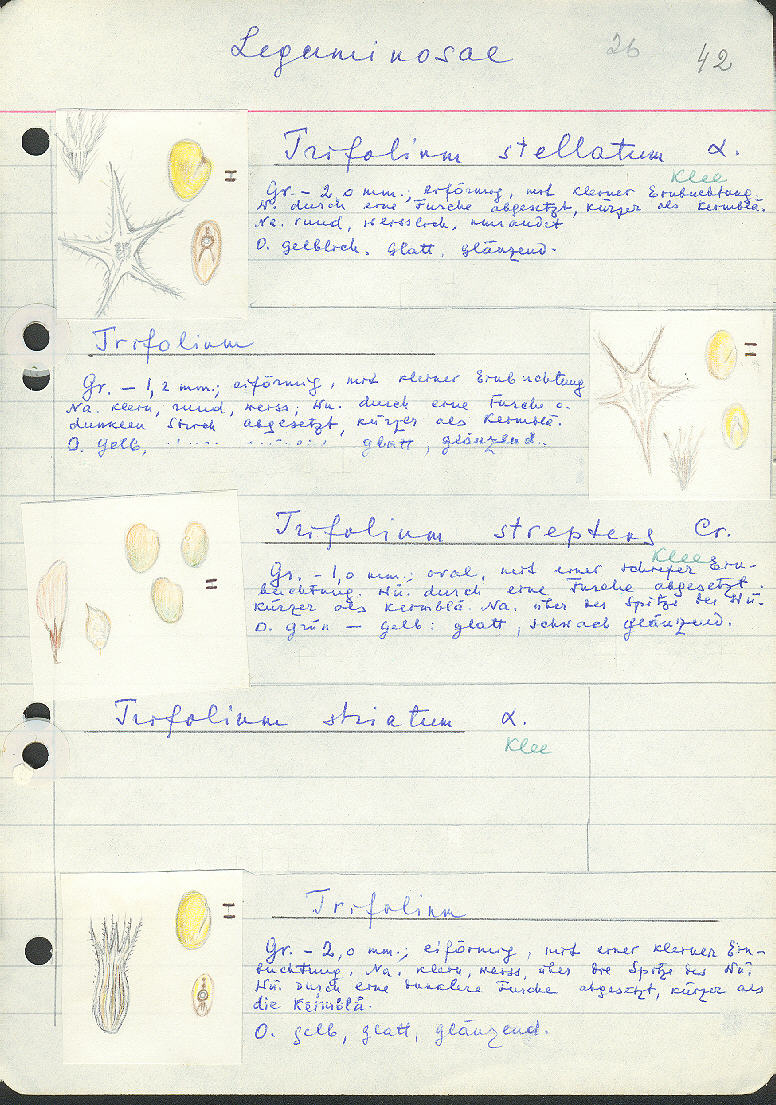 Leguminosae 26 42
Trifolium stellatum L.
Klee
Gr. – 2,0 mm.; eiförmig, mit kleiner Einbuchtung.
Wü. durch eine Furche abgesetzt, kürzer als Keimblä.
Na. rund, weisslich, umrandet
O. gelblich, glatt, glänzend.
Trifolium
Gr. – 1,2 mm.; eiförmig, mit kleiner Einbuchtung
Na. klein, rund, weiss; Wü. durch eine Furche o.
dunklen Strich abgesetzt, kürzer als Keimblä.
O. gelb, glatt, glänzend.
Trifolium strepens Cr.
Klee
Gr. – 1,0 mm.; oval, mit einer schiefer Ein-
buchtung. Wü. durch eine Furche abgesetzt.
kürzer als Keimblä. Na. über der Spitze der Wü.
O. grün – gelb: glatt, schwach glänzend.
Trifolium striatum L.
Klee
Trifolium
Gr. – 2,0 mm.; eiförmig, mit einer kleiner Ein-
buchtung. Na. klein, weiss, über die Spitze der Wü.
Wü. durch eine dunklere Furche abgesetzt, kürzer als
die Keimblä.
O. gelb, glatt, glänzend.